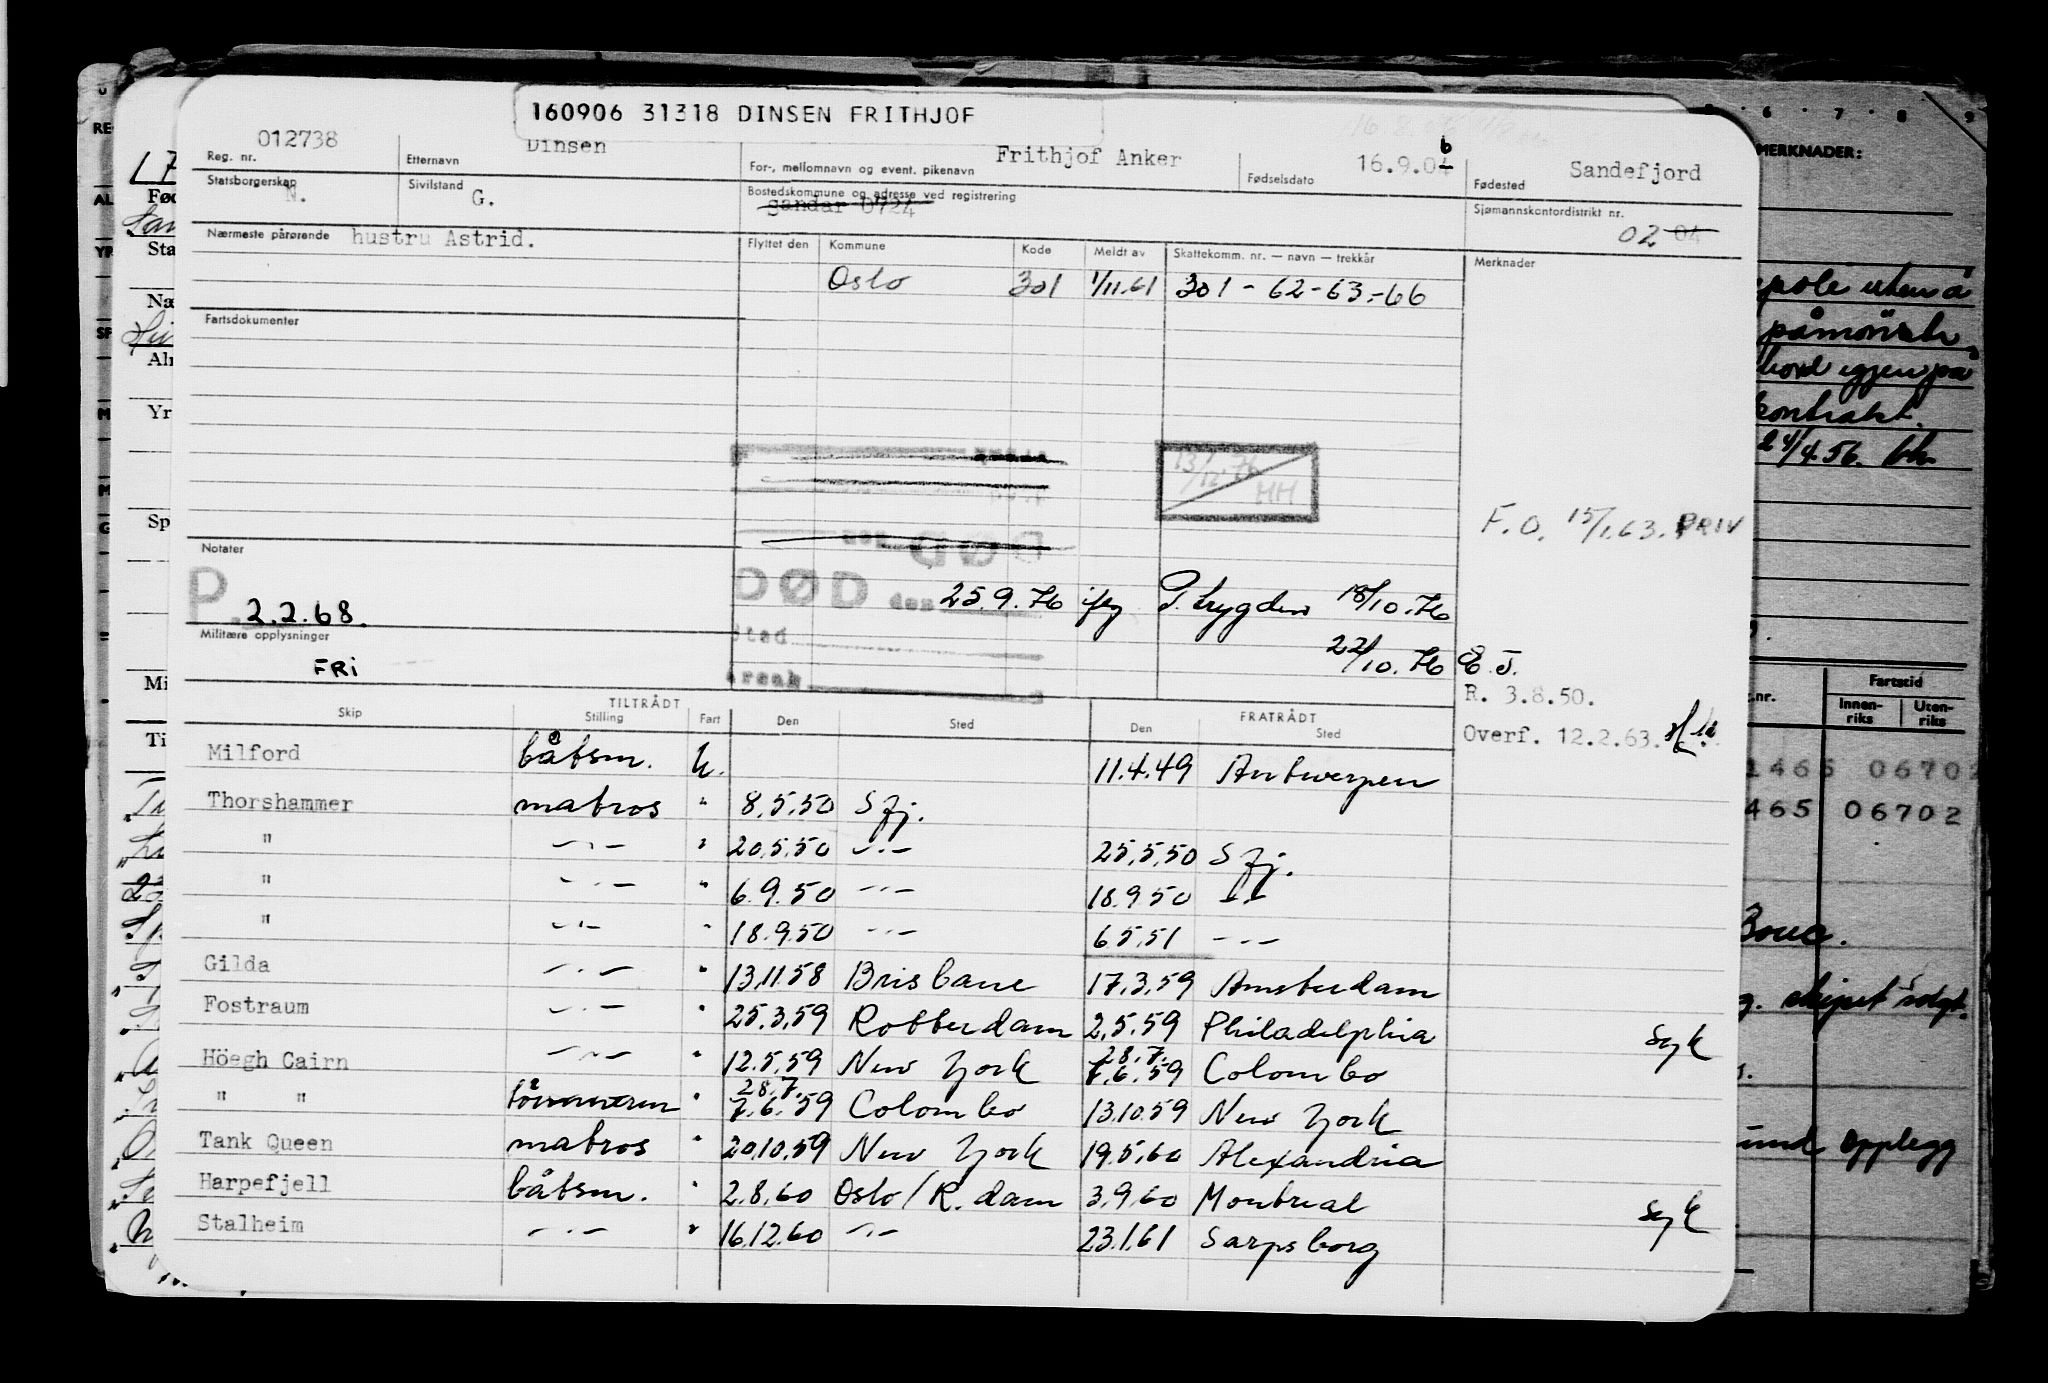 160906 31318 DINSEN FRITHJOF
012738 Dinsen Frithjof Anker 16.9.04 6 Sandefjord
Reg. nr. Etternavn For-, mellomnavn og event. pikenavn Fødselsdato Fødested
Statsborgerskap N. Sivilstand G. Bostedskommune og adresse ved registrering Sandar 0724 Sjømannskontordistrikt nr. 02 04
Nærmeste pårørende hustru Astrid. Flyttet den Kommune Kode Meldt av Skattekomm. nr. — navn — trekkår Merknader
Oslo 301 1/11.61 301 - 62-63-66
Fartsdokumenter
13/12.76 HH
F.O. 15/1.63. PRIV
Notater
P 2.2.68.
DØD den 25.9.76 iflg P. trygden 18/10.76
Sted
22/10.76 E.J.
Årsak
Militære opplysninger
FRI
R. 3.8.50.
Overf. 12.2.63.
TILTRÅDT FRATRÅDT
Skip Stilling Fart Den Sted Den Sted
Milford båtsm. U. 11.4.49 Antwerpen
Thorshammer matros " 8.5.50 Sfj.
" —"— " 20.5.50 —"— 25.5.50 Sfj.
" —"— " 6.9.50 —"— 18.9.50 —"—
" —"— " 18.9.50 —"— 6.5.51 —"—
Gilda —"— " 13.11.58 Brisbane 17.3.59 Amsterdam
Fostraum —"— " 25.3.59 Rotterdam 2.5.59 Philadelphia syk
Höegh Cairn —"— " 12.5.59 New York 28.7. 7.6.59 Colombo
" " tømmerm " 28.7. 7.6.59 Colombo 13.10.59 New York
Tank Queen matros " 20.10.59 New York 19.5.60 Alexandria
Harpefjell båtsm. " 2.8.60 Oslo/R.dam 3.9.60 Montreal syk
Stalheim —"— " 16.12.60 —"— 23.1.61 Sarpsborg
MERKNADER:
uten å
påmönstr.
bord igjen på
kontrakt.
24/4.56.
Fartstid
Innen-riks Uten-riks
1465 06702
465 06702
Bouc.
skipet solgt.
opplegg